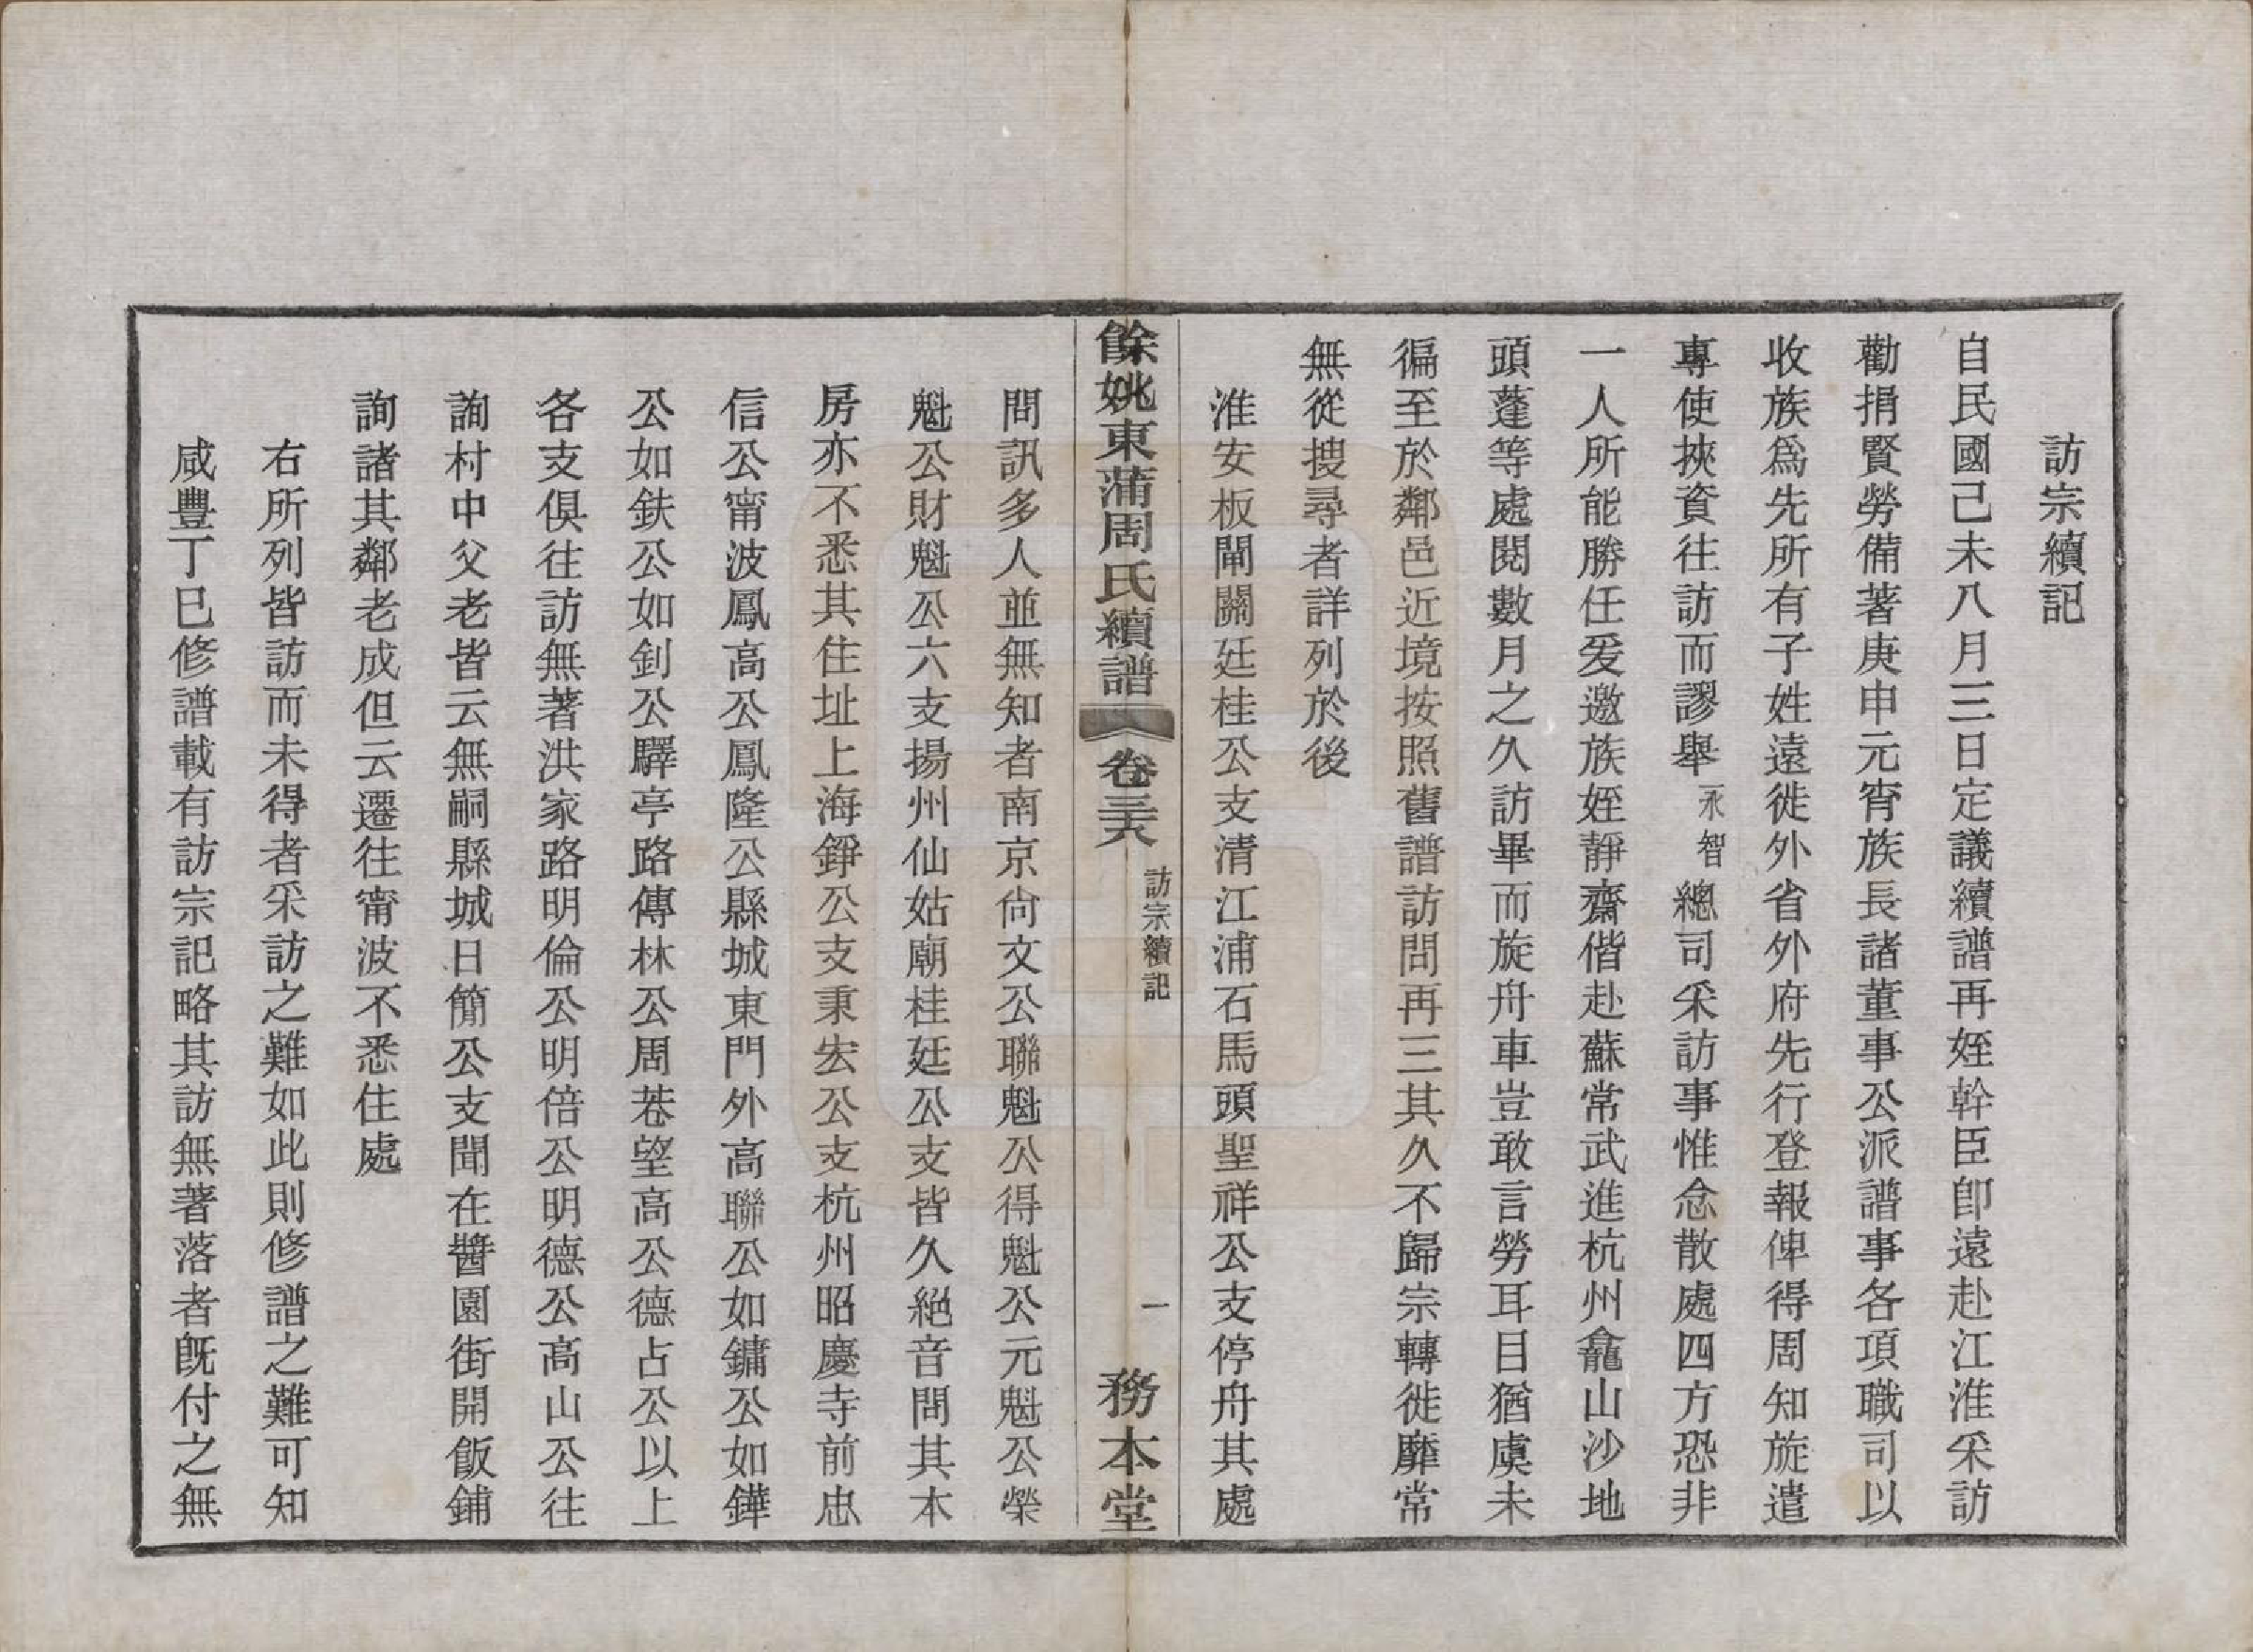 訪宗續記
自民國己未八月三日定議續譜再姪幹臣卽遠赴江淮采訪
勸捐賢勞備著庚申元宵族長諸董事公派譜事各項職司以
收族爲先所有子姓遠徙外省外府先行登報俾得周知旋遣
專使挾資往訪而謬舉永智總司采訪事惟念散處四方恐非
一人所能勝任爰邀族姪靜齋偕赴蘇常武進杭州龕山沙地
頭蓬等處閱數月之久訪畢而旋舟車豈敢言勞耳目猶虞未
徧至於鄰邑近境按照舊譜訪問再三其久不歸宗轉徙靡常
無從搜尋者詳列於後
淮安板閘關廷桂公支清江浦石馬頭聖祥公支停舟其處
餘姚東蒲周氏續譜
卷三十六
訪宗續記
一
務本堂
問訊多人並無知者南京尙文公聯魁公得魁公元魁公榮
魁公財魁公六支揚州仙姑廟桂廷公支皆久絕音問其本
房亦不悉其住址上海錚公支秉宏公支杭州昭慶寺前忠
信公甯波鳳高公鳳隆公縣城東門外高聯公如鏞公如鏵
公如鈇公如釗公驛亭路傳林公周巷望高公德占公以上
各支俱往訪無著洪家路明倫公明倍公明德公高山公往
詢村中父老皆云無嗣縣城日簡公支聞在醬園街開飯鋪
詢諸其鄰老成但云遷往甯波不悉住處
右所列皆訪而未得者采訪之難如此則修譜之難可知
咸豐丁巳修譜載有訪宗記略其訪無著落者旣付之無